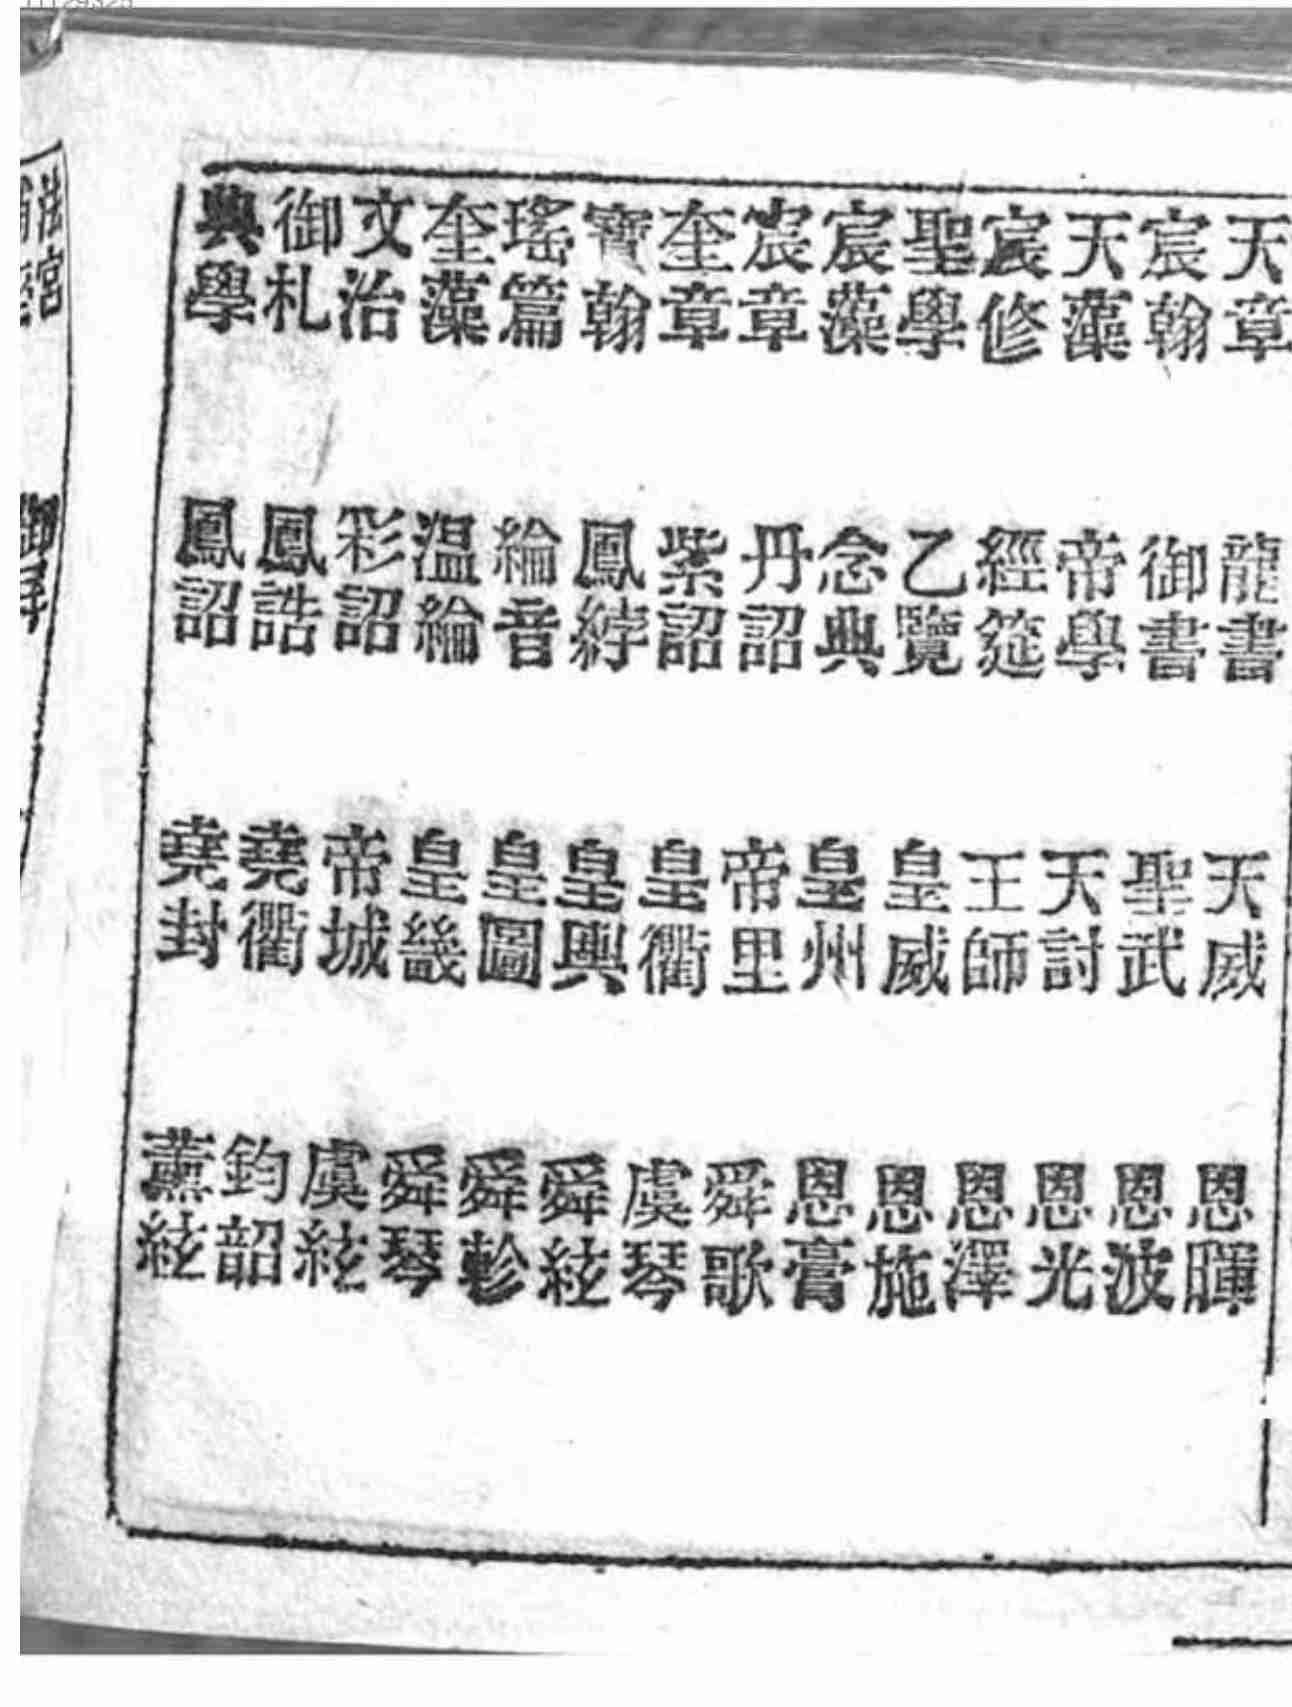 天章 龍書 天威 恩暉
宸翰 御書 聖武 恩波
天藻 帝學 天討 恩光
宸修 經筵 王師 恩澤
聖學 乙覽 皇威 恩施
宸藻 念典 皇州 恩膏
宸章 丹詔 帝里 舜歌
奎章 紫詔 皇衢 虞琴
寶翰 鳳綍 皇輿 舜絃
瑤篇 綸音 皇圖 舜軫
奎藻 温綸 皇畿 舜琴
文治 彩詔 帝城 虞絃
御札 鳳誥 堯衢 鈞韶
典學 鳳詔 堯封 薰絃
法宮